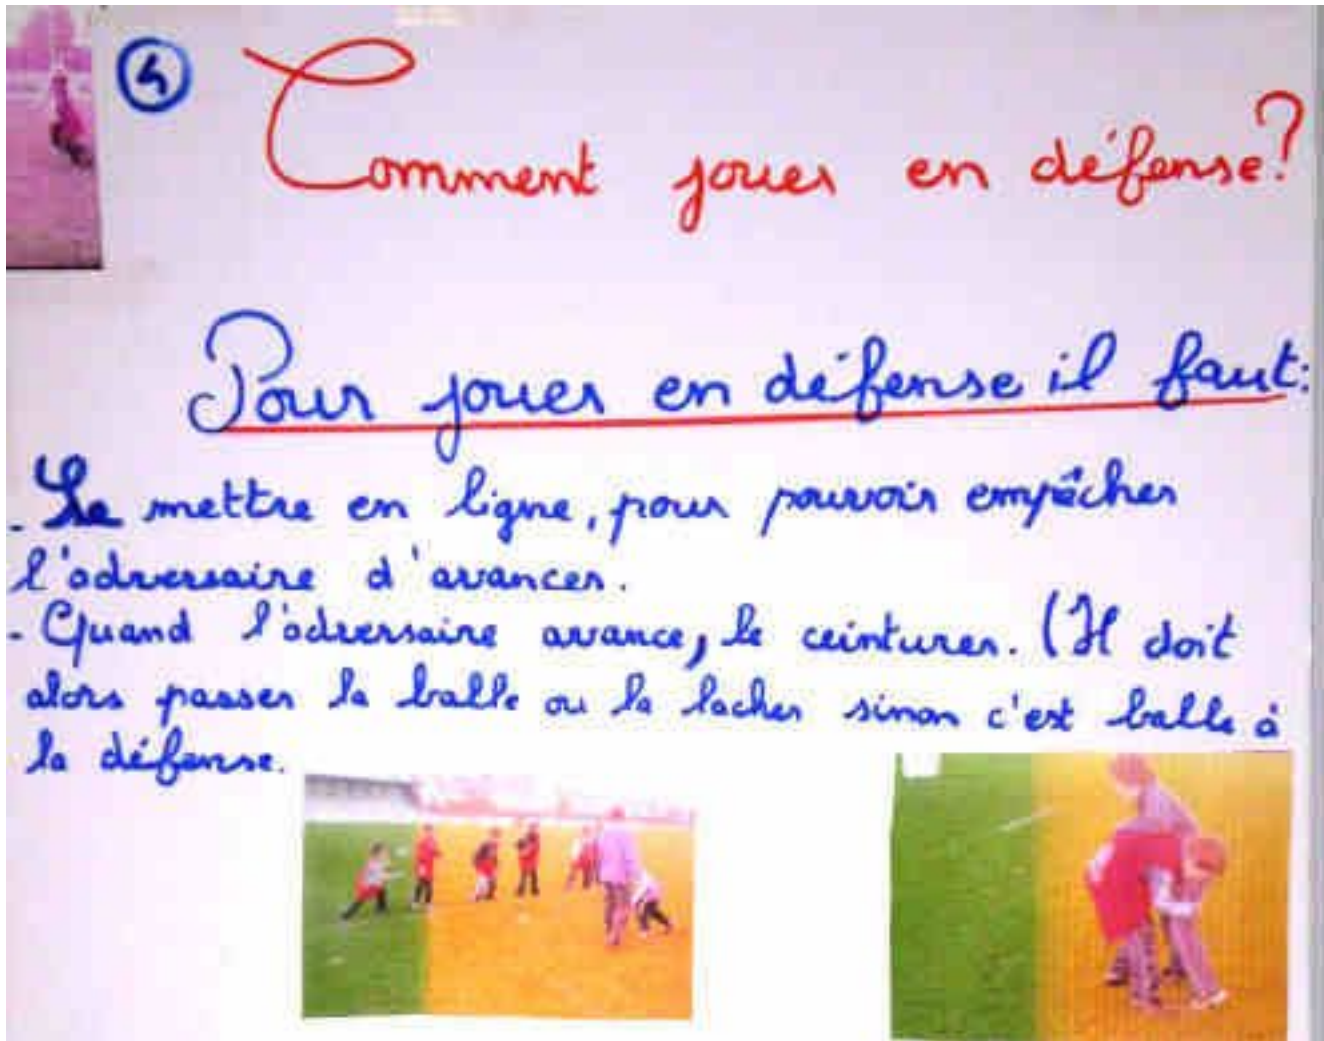 4
Comment jouer en défense?
Pour jouer en défense il faut:
- Se mettre en ligne, pour pouvoir empêcher
l'adversaire d'avancer.
- Quand l'adversaire avance, le ceinturer. (Il doit
alors passer la balle ou la lacher sinon c'est balle à
la défense.